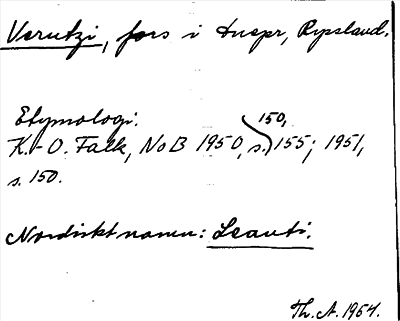 Verutzi, fors i Dnepr, Ryssland.
Etymologi:
150,
K.-O. Falk, NoB 1950, s. 155; 1951,
s. 150.
Nordiskt namn: Leanti.
Th. A. 1954.